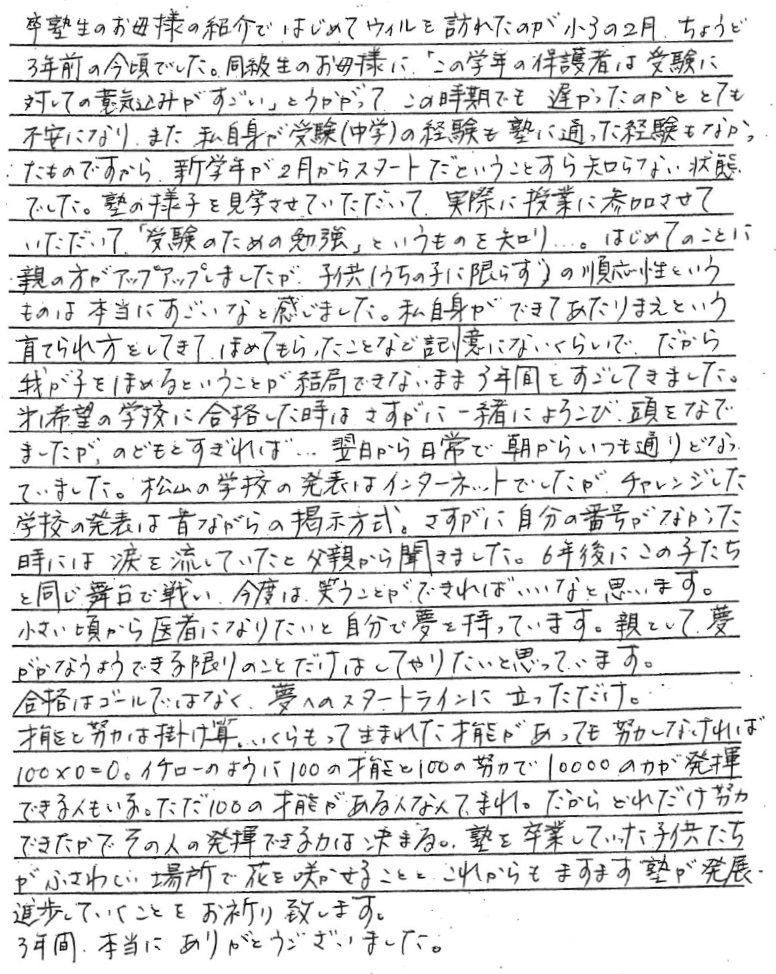 卒塾生のお母様の紹介で はじめてウィルを訪れたのが小3の2月、ちょうど
3年前の今頃でした。同級生のお母様に、「この学年の保護者は受験に
対しての意気込みがすごい」とうかがって この時期でも 遅かったのかと とても
不安になり、また 私自身が受験(中学)の経験も塾に通った経験もなかっ
たものですから、新学年が2月からスタートだということすら知らない状態
でした。塾の様子を見学させていただいて、実際に授業に参加させて
いただいて、「受験のための勉強」というものを知り…。はじめてのことに
親の方がアップアップしましたが、子供(うちの子に限らず)の順応性という
ものは本当にすごいなと感じました。私自身が できてあたりまえという
育てられ方をしてきて、ほめてもらったことなど記憶にないくらいで、だから
我が子をほめるということが結局できないまま3年間をすごしてきました。
第1希望の学校に合格した時はさすがに一緒によろこび、頭をなで
ましたが、のどもとすぎれば… 翌日から日常で朝からいつも通りどなっ
ていました。松山の学校の発表はインターネットでしたが、チャレンジした
学校の発表は昔ながらの掲示方式。さすがに自分の番号がなかった
時には涙を流していたと父親から聞きました。6年後にこの子たち
と同じ舞台で戦い、今度は笑うことができればいいなと思います。
小さい頃から医者になりたいと自分で夢を持っています。親として、夢
がかなうようできる限りのことだけはしてやりたいと思っています。
合格はゴールではなく、夢へのスタートラインに立っただけ。
才能と努力は掛け算。いくらもって生まれた才能があっても努力しなければ
100×0=0。イチローのように100の才能と100の努力で10000の力が発揮
できる人もいる。ただ100の才能がある人なんてまれ。だからどれだけ努力
できたかでその人の発揮できる力は決まる。塾を卒業していった子供たち
がふさわしい場所で花を咲かせることと、これからもますます塾が発展・
進歩していくことをお祈り致します。
3年間、本当にありがとうございました。